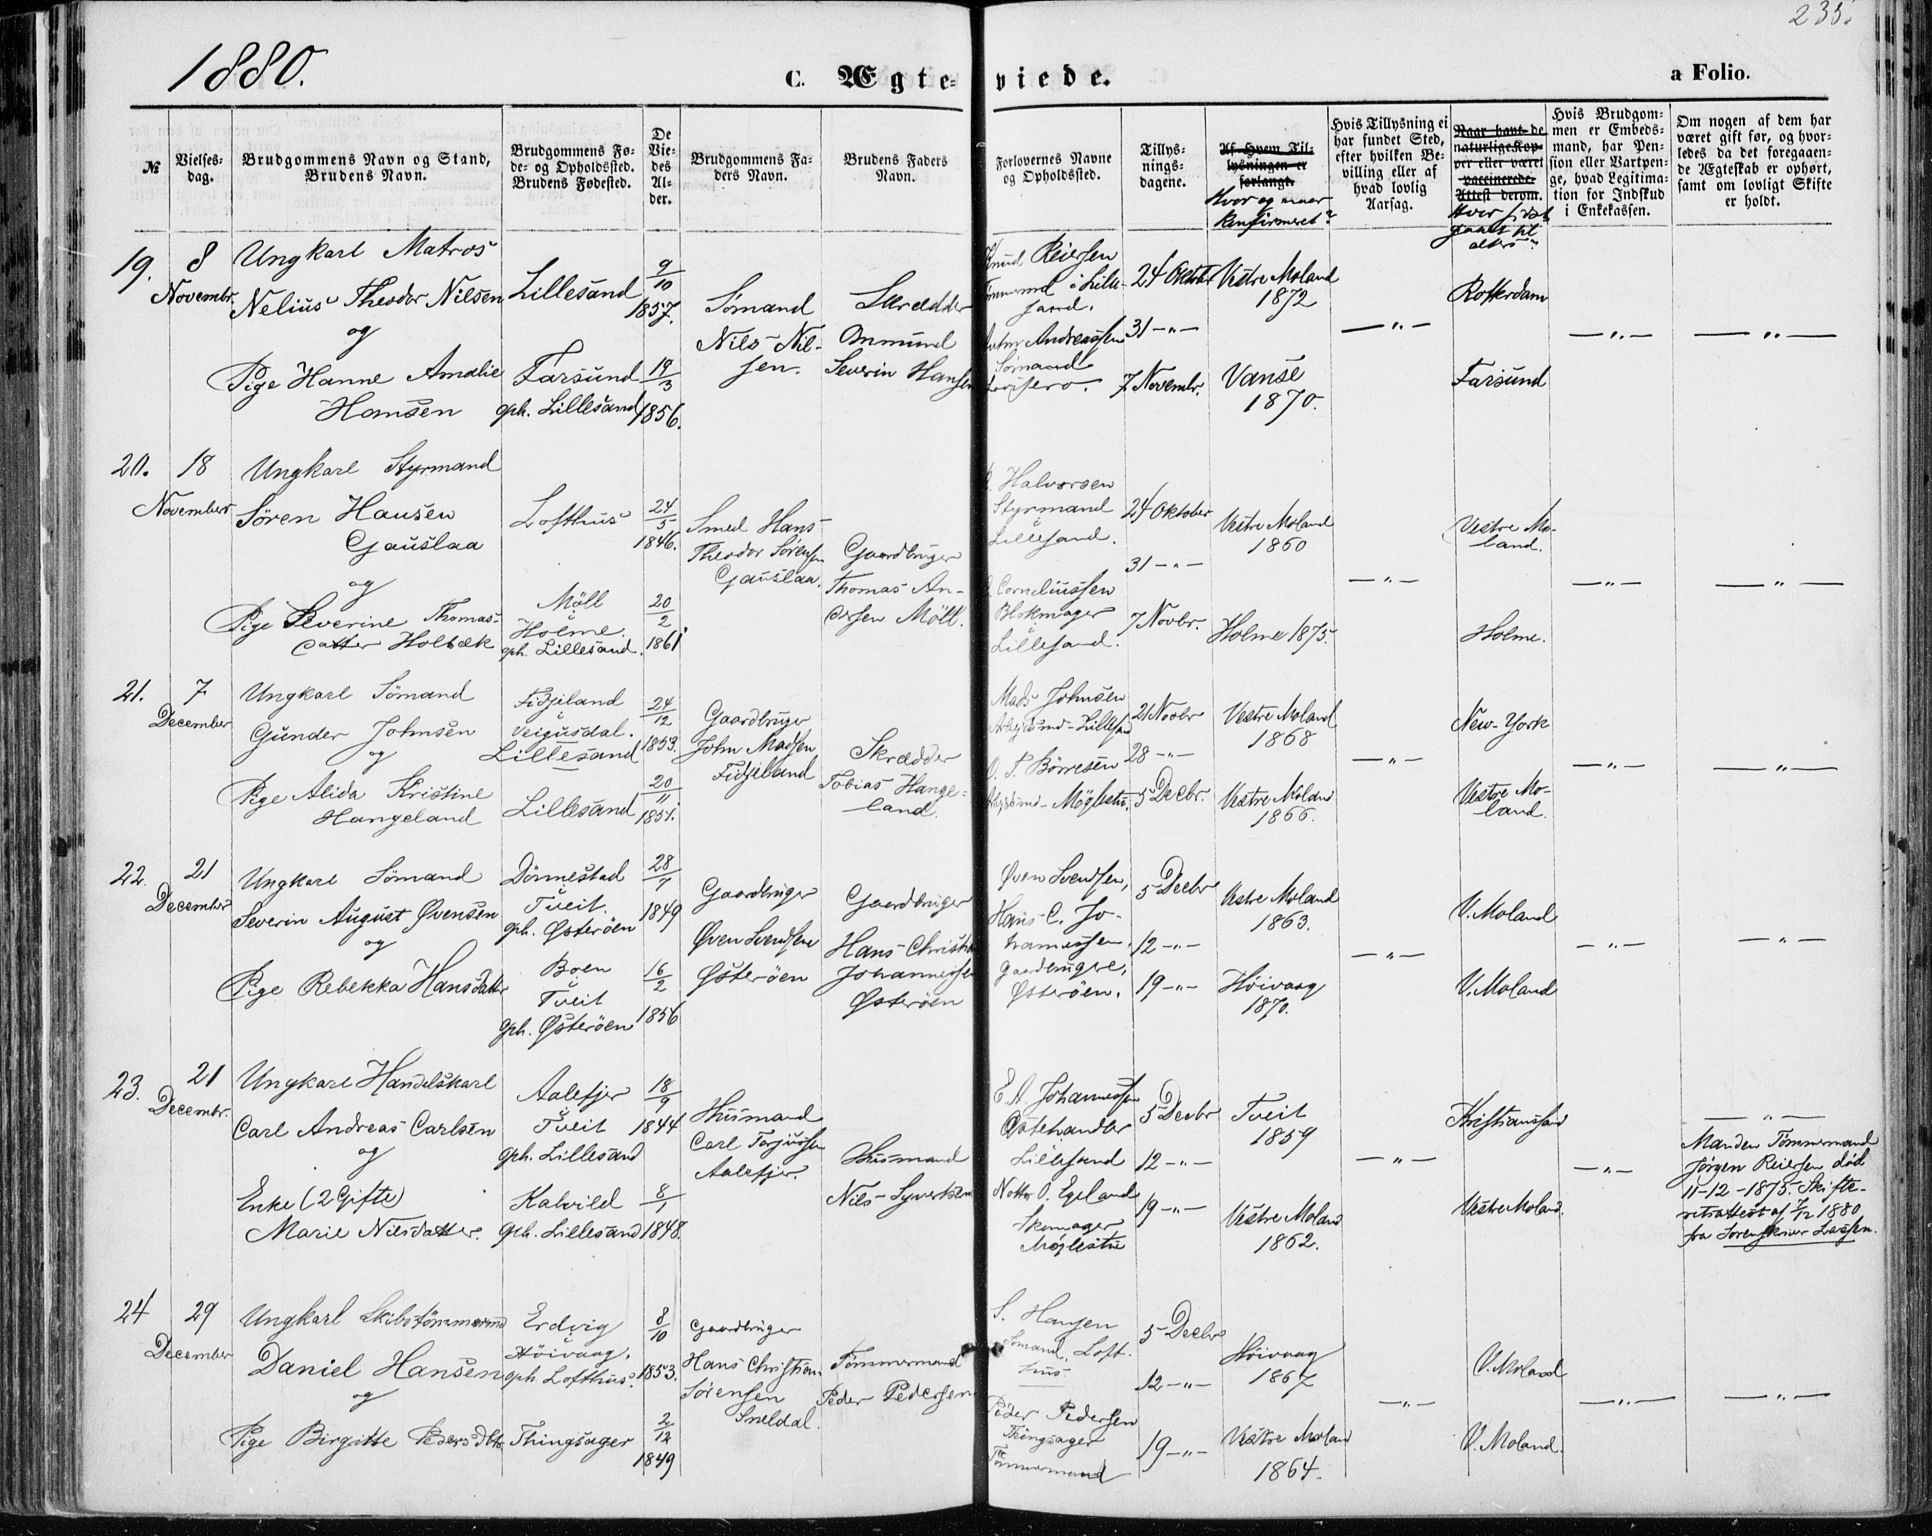 1880.
C. Ægteviede.
a Folio.
235.
№
Vielsesdag.
Brudgommens Navn og Stand,
Brudens Navn.
Brudgommens Føde- og Opholdssted.
Brudens Fødested.
De Viedes Alder.
Brudgommens Faders Navn.
Brudens Faders Navn.
Forlovernes Navne og Opholdssted.
Tillysningsdagene.
Af Hvem Tillysningen er forlangt.
Hvor og naar konfirmeret?
Hvis Tillysning ei har fundet Sted, efter hvilken Bevilling eller af hvad lovlig Aarsag.
Naar havt de naturlige Kopper eller været vaccinerede. Attest derom.
Hvor sidst gaaet til alters
Hvis Brudgommen er Embedsmand, har Pension eller Vartpenge, hvad Legitimation for Indskud i Enkekassen.
Om nogen af dem har været gift før, og hvorledes da det foregaaende Ægteskab er ophørt, samt om lovligt Skifte er holdt.
19.
8 Novembr.
Ungkarl Matros
Nelius Theodor Nilsen
og
Pige Hanne Amalie
Hansen
Lillesand
Farsund
oph. Lillesand
9/10 1857.
19/3 1856.
Sømand
Nils Nilsen.
Skrædder
Ommund
Severin Hansen
Knud Reiersen
Tømmermd i Lillesand.
Andreassen
Sømand
24 Oktobr
31 -"-
7 Novembr.
Vestre Moland
1872
Vanse
1870.
Rotterdam
Farsund
-"-
-"-
-"-
20.
18
November
Ungkarl Styrmand
Søren Hansen
Gauslaa
og
Pige Severine Thomasdatter Holbæk
Lofthus
Möll
Holme.
oph. Lillesand.
24/5 1846.
20/2 1861
Smed Hans
Theodor Sørensen
Gauslaa.
Gaardbruger
Thomas Andersen Möll.
Halvorsen
Styrmand
Lillesand.
Corneliussen
Blokmager
Lillesand.
24 Oktober
31 -"-
7 Novbr.
Vestre Moland
1860
Holme 1875.
Vestre Moland.
Holme.
-"-
-"-
-"-
21.
7
December
Ungkarl Sömand
Gunder Johnsen
og
Pige Alida Kristine
Hangeland
Fidjeland
Veigusdal.
Lillesand
Lillesand
24/12 1853.
20/11 1851.
Gaardbruger
John Madsen
Fidjeland
Skrædder
Tobias Hangeland.
Mads Johnsen
Lillesand
Börresen
Möglestu.
21 Novbr
28 -"-
5 Decbr.
Vestre Moland
1868
Vestre Moland
1866.
New-York
Vestre Moland.
-"-
-"-
-"-
22.
21
December
Ungkarl Sömand
Severin August Øvensen
og
Pige Rebekka Hansdatter
Dönnestad
Tveit.
oph. Østeröen
Boen
Tveit
oph. Østeröen
28/1 1849
16/2 1856
Gaardbruger
Øven Svendsen
Østeröen
Gaardbruger
Hans Christian
Johannessen
Østeröen
Øven Svendsen,
Hans C. Johannessen.
Gaardbrugere,
Østeröen.
5 Decbr
12 -"-
19 -"-
Vestre Moland
1863.
Höivaag
1870.
V. Moland
V. Moland
-"-
-"-
-"-
23.
21
Decembr.
Ungkarl Handelskarl
Carl Andreas Carlsen
og
Enke (2 Gifte)
Marie Nilsdatter.
Aalefjer
Tveit
oph. Lillesand
Kalvild
oph. Lillesand
18/9 1844
8/1 1848.
Husmand
Carl Terjussen
Aalefjer.
Husmand
Nils Syvertsen
E. A. Johannessen
Lillesand
O. Egeland
Skomager
Möglestu
5 Decbr
12 -"-
19 -"-
Tveit
1859
Vestre Moland
1862.
Kristianssand
Vestre Moland.
-"-
-"-
-"-
Manden Tømmermand
Jörgen Reiersen död
11-12-1875. Skifteretsattest af 7/12 1880
fra Sorenskriver Lassen.
24
29
December
Ungkarl Skibstömmermd
Daniel Hansen
og
Pige Birgitte Pedersdtr.
Erdvig
Höivaag.
oph Lofthus.
Thingsager
8/10 1853.
2/12 1849
Gaardbruger
Hans Christian
Sörensen
Sneldal.
Tømmermand
Peder Pedersen
S. Hansen
Sömand, Lofthus
Peder Pedersen
Thingsager
Tömmermand
5 Decbr
12 -"-
19 -"-
Höivaag
1867
Vestre Moland
1864.
V. Moland
V. Moland.
-"-
-"-
-"-